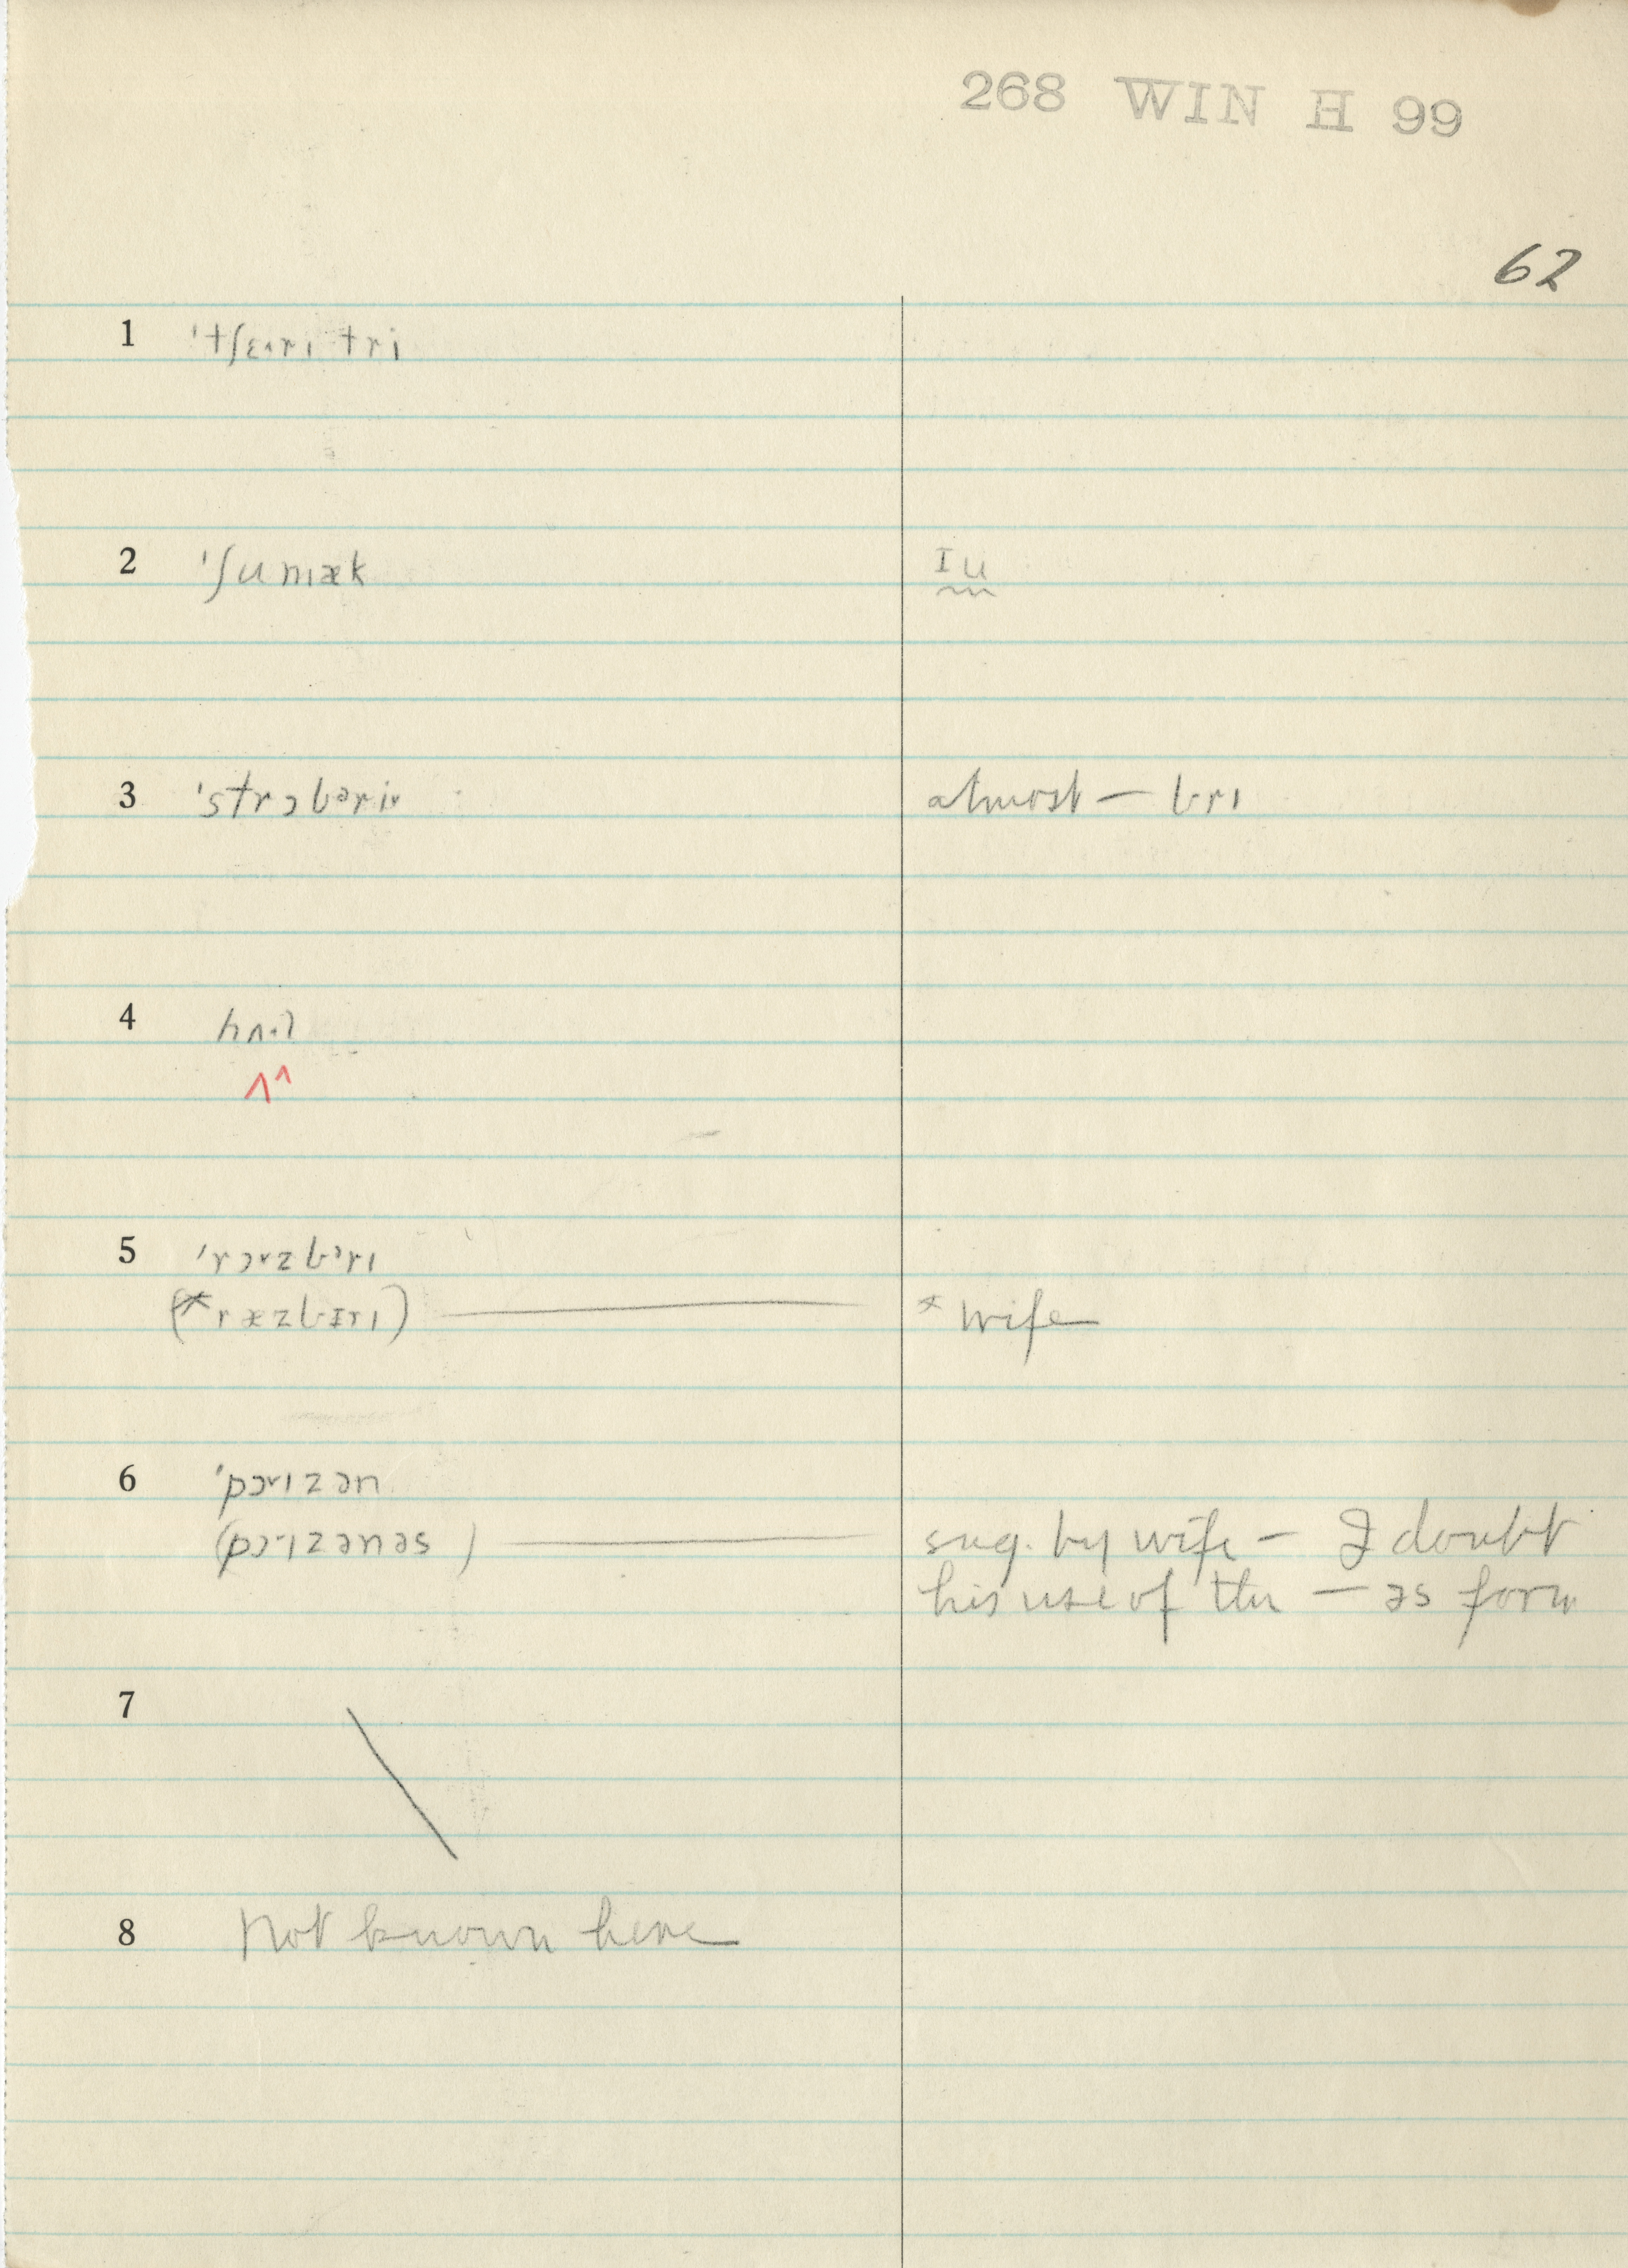 268 WIN H 99
62
1 ˈtʃɛ·rɪ tri
2 ˈʃumæk Iu
3 ˈstrɔbᵊri almost — brɪ
4
ʌ^
5 ˈrɔ˅zbᵊrɪ
(*ræzbɪrɪ) — * wife
6 ˈpɔ˅ɪzən
(pɔ·ɪzənəs) — sug. by wife — I doubt
his use of the — əs form
7 \
8 Not known here